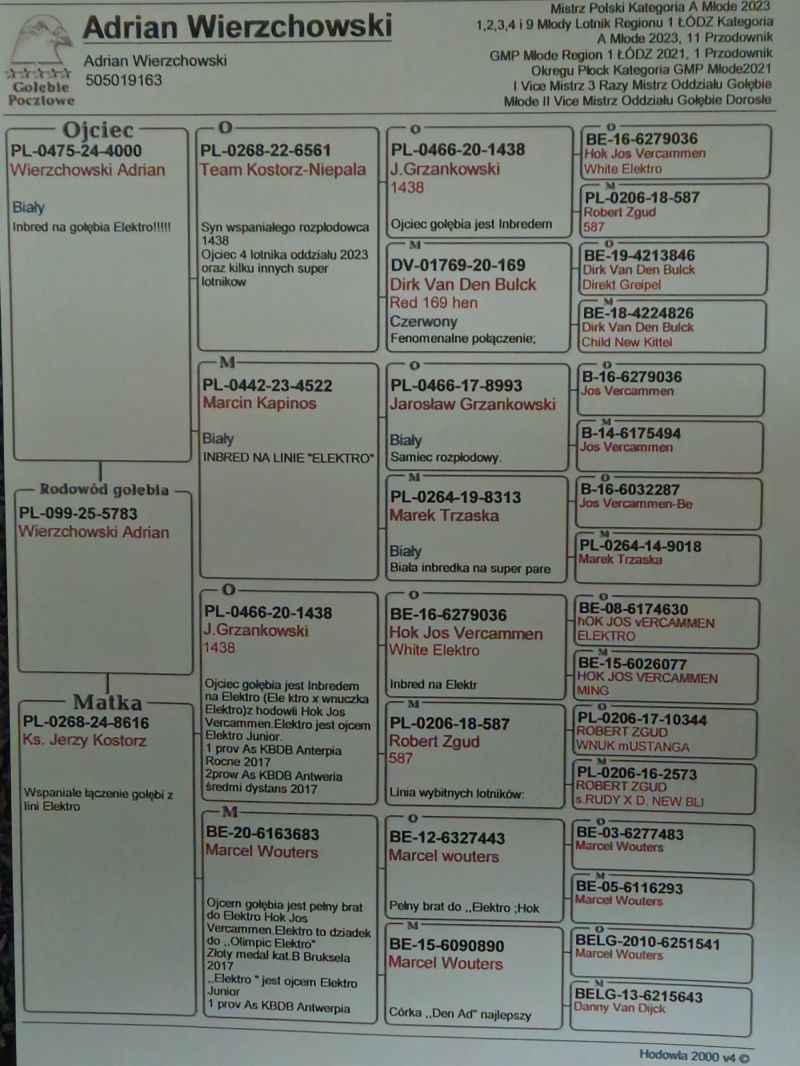 Adrian Wierzchowski
Adrian Wierzchowski
505019163
Gołębie
Pocztowe
Mistrz Polski Kategoria A Młode 2023
1,2,3,4 i 9 Młody Lotnik Regionu 1 ŁÓDZ Kategoria
A Młode 2023, 11 Przodownik
GMP Młode Region 1 ŁÓDZ 2021, 1 Przodownik
Okregu Płock Kategoria GMP Młode2021
I Vice Mistrz 3 Razy Mistrz Oddziału Gołębie
Młode II Vice Mistrz Oddziału Gołębie Dorosłe
Ojciec
PL-0475-24-4000
Wierzchowski Adrian
Biały
Inbred na gołębia Elektro!!!!!
Rodowód gołębia
PL-099-25-5783
Wierzchowski Adrian
Matka
PL-0268-24-8616
Ks. Jerzy Kostorz
Wspaniałe łączenie gołębi z
lini Elektro
O
PL-0268-22-6561
Team Kostorz-Niepala
Syn wspaniałego rozpłodowca
1438
Ojciec 4 lotnika oddziału 2023
oraz kilku innych super
lotnikow
M
PL-0442-23-4522
Marcin Kapinos
Biały
INBRED NA LINIE "ELEKTRO"
O
PL-0466-20-1438
J.Grzankowski
1438
Ojciec gołębia jest Inbredem
na Elektro (Ele ktro x wnuczka
Elektro)z hodowli Hok Jos
Vercammen.Elektro jest ojcem
Elektro Junior.
1 prov As KBDB Anterpia
Rocne 2017
2prow As KBDB Antweria
średmi dystans 2017
M
BE-20-6163683
Marcel Wouters
Ojcem gołębia jest pełny brat
do Elektro Hok Jos
Vercammen.Elektro to dziadek
do ,,Olimpic Elektro"
Złoty medal kat.B Bruksela
2017
,,Elektro " jest ojcem Elektro
Junior
1 prov As KBDB Antwerpia
O
PL-0466-20-1438
J.Grzankowski
1438
Ojciec gołębia jest Inbredem
M
DV-01769-20-169
Dirk Van Den Bulck
Red 169 hen
Czerwony
Fenomenalne połączenie;
O
PL-0466-17-8993
Jarosław Grzankowski
Biały
Samiec rozpłodowy.
M
PL-0264-19-8313
Marek Trzaska
Biały
Biała inbredka na super pare
O
BE-16-6279036
Hok Jos Vercammen
White Elektro
Inbred na Elektr
M
PL-0206-18-587
Robert Zgud
587
Linia wybitnych lotników:
O
BE-12-6327443
Marcel wouters
Pełny brat do ,,Elektro ;Hok
M
BE-15-6090890
Marcel Wouters
Córka ,,Den Ad" najlepszy
O
BE-16-6279036
Hok Jos Vercammen
White Elektro
M
PL-0206-18-587
Robert Zgud
587
O
BE-19-4213846
Dirk Van Den Bulck
Direkt Greipel
M
BE-18-4224826
Dirk Van Den Bulck
Child New Kittel
O
B-16-6279036
Jos Vercammen
M
B-14-6175494
Jos Vercammen
O
B-16-6032287
Jos Vercammen-Be
M
PL-0264-14-9018
Marek Trzaska
O
BE-08-6174630
hOK JOS vERCAMMEN
ELEKTRO
M
BE-15-6026077
HOK JOS VERCAMMEN
MING
O
PL-0206-17-10344
ROBERT ZGUD
WNUK mUSTANGA
M
PL-0206-16-2573
ROBERT ZGUD
s.RUDY X D. NEW BLI
O
BE-03-6277483
Marcel Wouters
M
BE-05-6116293
Marcel Wouters
O
BELG-2010-6251541
Marcel Wouters
M
BELG-13-6215643
Danny Van Dijck
Hodowla 2000 v4 ©